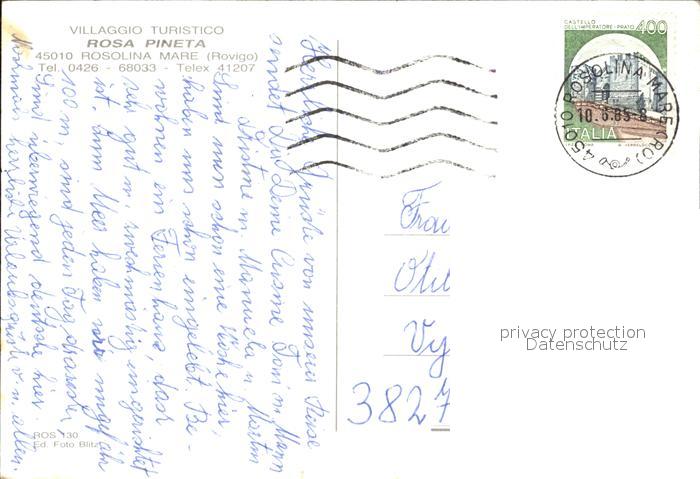 VILLAGGIO TURISTICO
ROSA PINETA
45010 ROSOLINA MARE (Rovigo)
Tel. 0426 - 68033 - Telex 41207
Herzliche Grüße von unserer Reise
sendet Dir Deine Cousine Toni m. Mann
Christine m. Manuela u. Martin
Sind nun schon eine Woche hier,
haben uns schon eingelebt. Be-
wohnen ein Ferienhaus, das
sehr gut u. zweckmäßig eingerichtet
ist. Zum Meer haben wir ungefähr
100 m, sind jeden Tag draußen,
Sind überwiegend deutsche hier.
Nochmals herzliche Urlaubsgrüße v. u. allen.
ROS 130
Ed. Foto Blitz
CASTELLO
DELL'IMPERATORE - PRATO
400
ITALIA
45010 ROSOLINA MARE (RO)
Frau
3827
privacy protection
Datenschutz